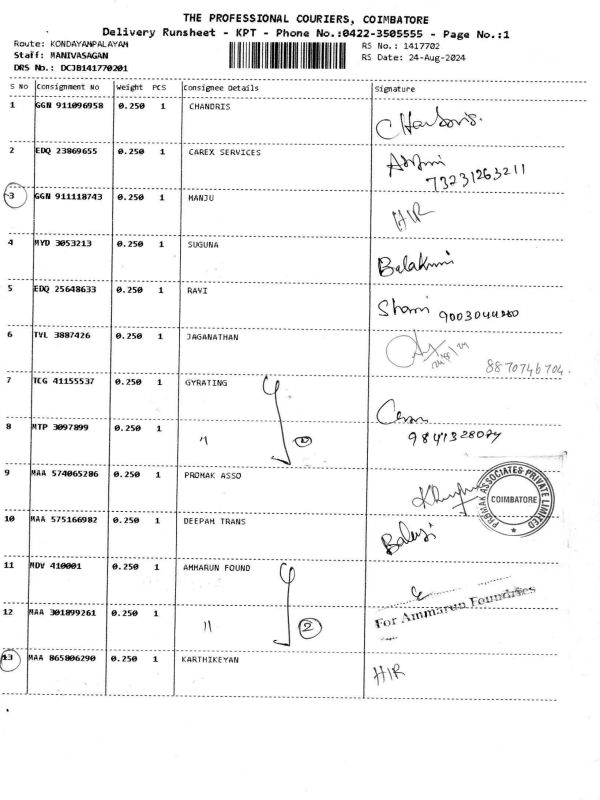 THE PROFESSIONAL COURIERS, COIMBATORE
Delivery Runsheet - KPT - Phone No.:0422-3505555 - Page No.:1
Route: KONDAYAMPALAYAM
RS No.: 1417702
Staff: MANIVASAGAN
RS Date: 24-Aug-2024
DRS No.: DCJB141770201
S No Consignment No Weight PCS Consignee Details Signature
1 GGN 911096958 0.250 1 CHANDRIS
2 EDQ 23869655 0.250 1 CAREX SERVICES
73231263211
3 GGN 911118743 0.250 1 MANJU H/R
4 MYD 3053213 0.250 1 SUGUNA
5 EDQ 25648633 0.250 1 RAVI
6 TVL 3887426 0.250 1 JAGANATHAN
8870746704.
7 TCG 41155537 0.250 1 GYRATING
8 MTP 3097899 0.250 1 "
9841328074
9 MAA 574065286 0.250 1 PROMAK ASSO
PROMAK ASSOCIATES PRIVATE LIMITED
COIMBATORE
10 MAA 575166982 0.250 1 DEEPAM TRANS
11 MDV 410001 0.250 1 AMMARUN FOUND
For Ammarun Foundries
12 MAA 301899261 0.250 1 " 2
13 MAA 865806290 0.250 1 KARTHIKEYAN H/R